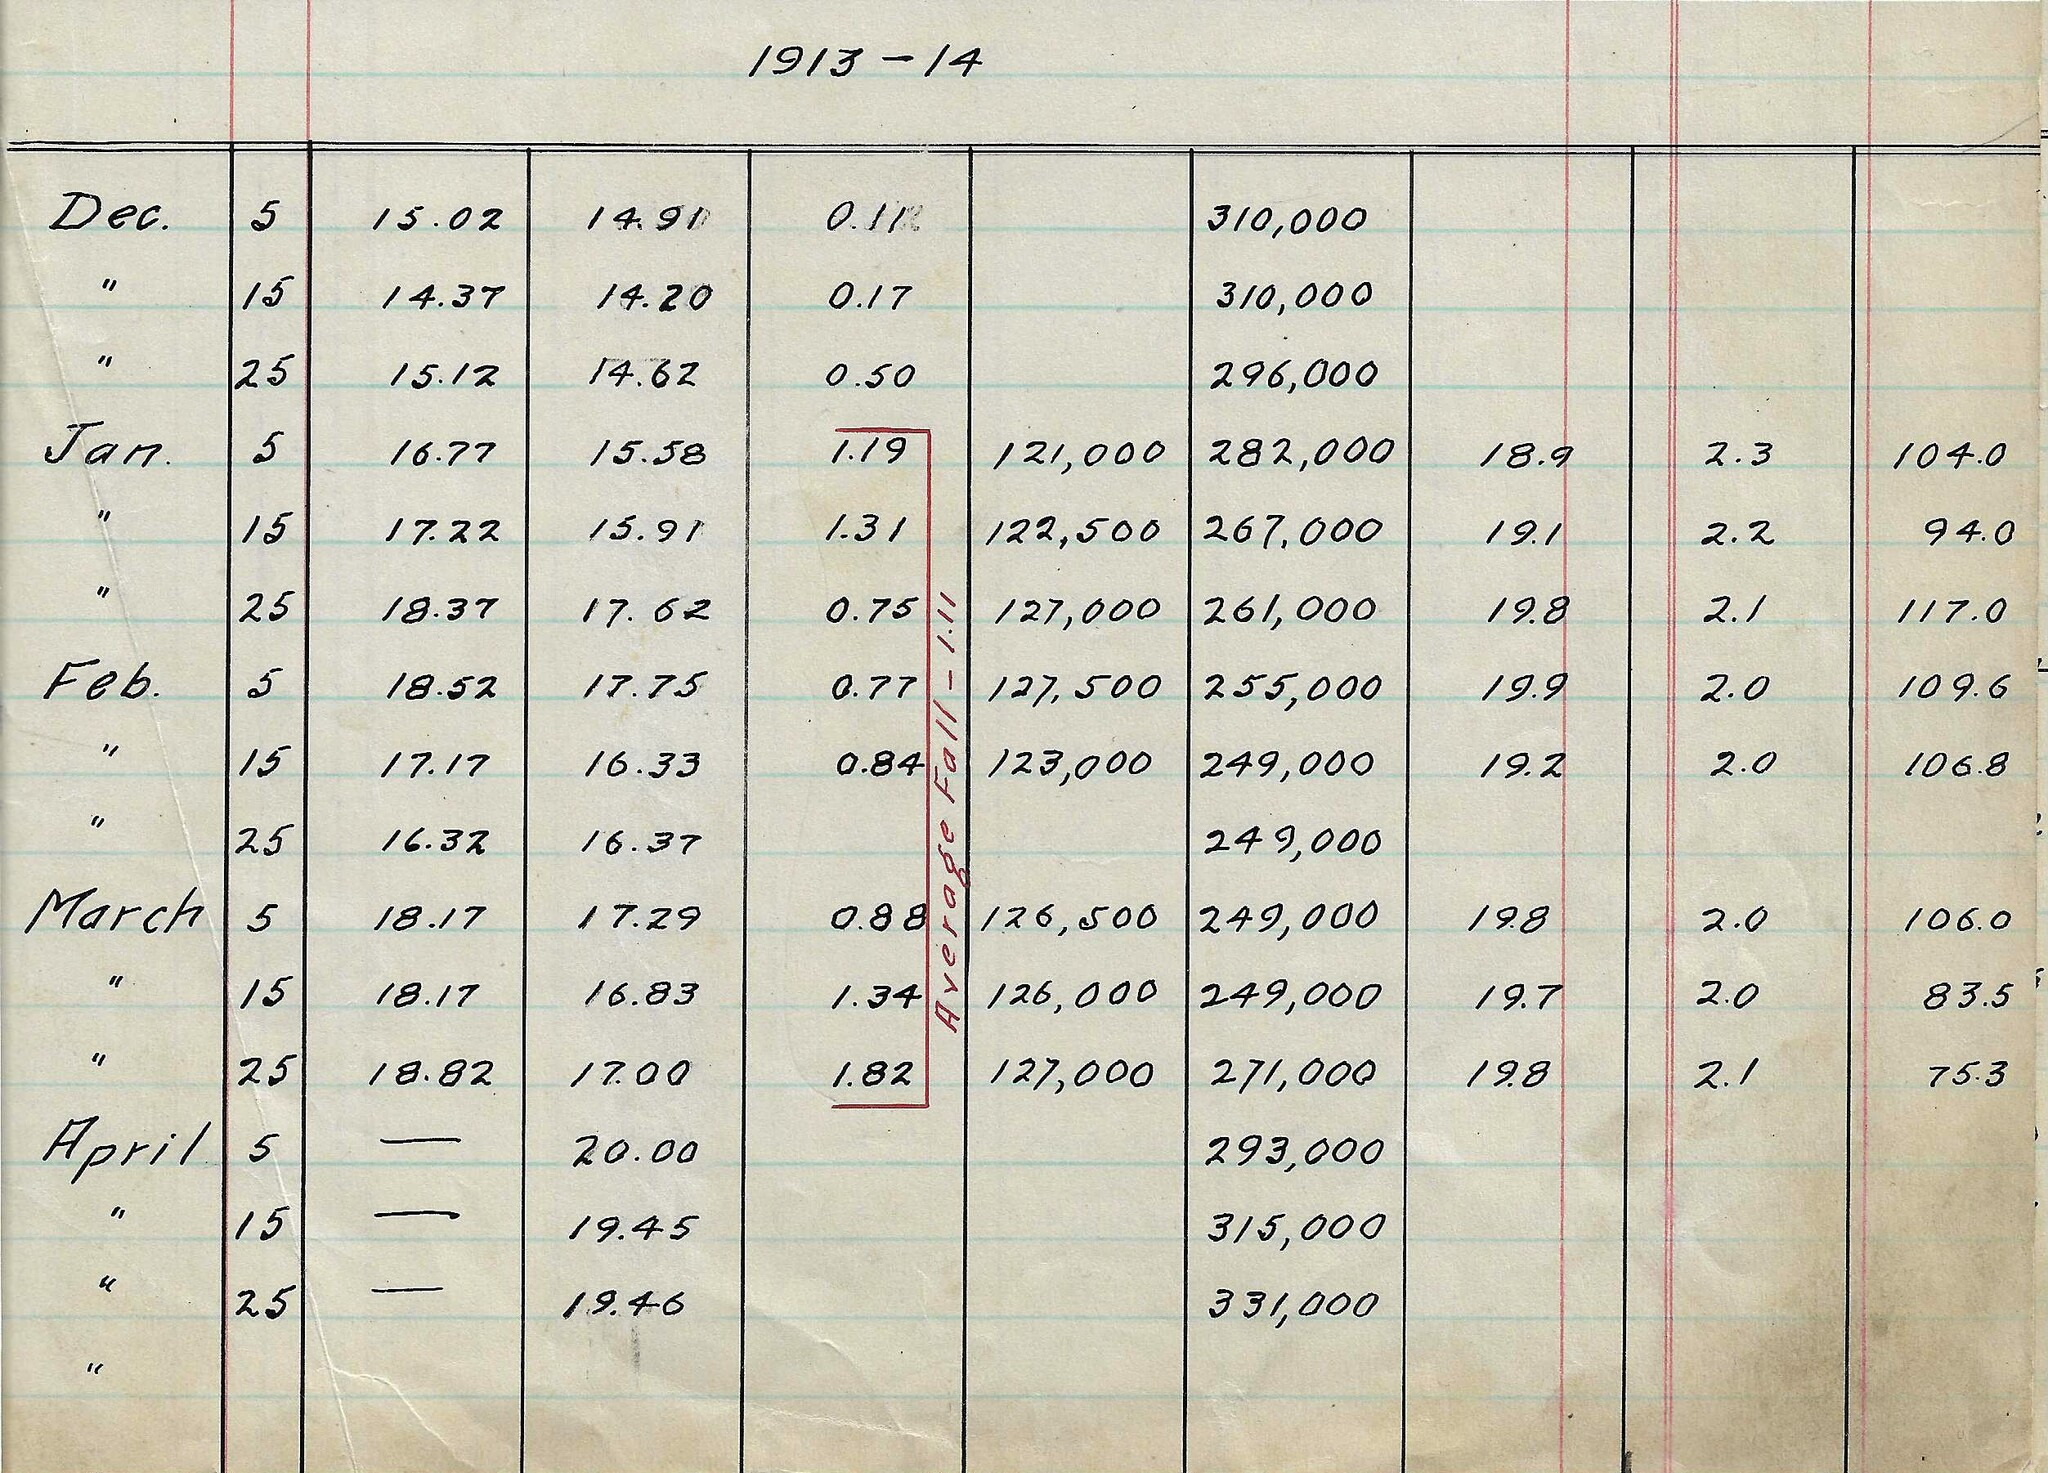 1913 – 14
Dec. 5 15.02 14.91 0.11 310,000
" 15 14.37 14.20 0.17 310,000
" 25 15.12 14.62 0.50 296,000
Jan. 5 16.77 15.58 1.19 121,000 282,000 18.9 2.3 104.0
" 15 17.22 15.91 1.31 122,500 267,000 19.1 2.2 94.0
" 25 18.37 17.62 0.75 127,000 261,000 19.8 2.1 117.0
Feb. 5 18.52 17.75 0.77 127,500 255,000 19.9 2.0 109.6
" 15 17.17 16.33 0.84 123,000 249,000 19.2 2.0 106.8
" 25 16.32 16.37 249,000
March 5 18.17 17.29 0.88 126,500 249,000 19.8 2.0 106.0
" 15 18.17 16.83 1.34 126,000 249,000 19.7 2.0 83.5
" 25 18.82 17.00 1.82 127,000 271,000 19.8 2.1 75.3
April 5 — 20.00 293,000
" 15 — 19.45 315,000
" 25 — 19.46 331,000
"
Average Fall – 1.11